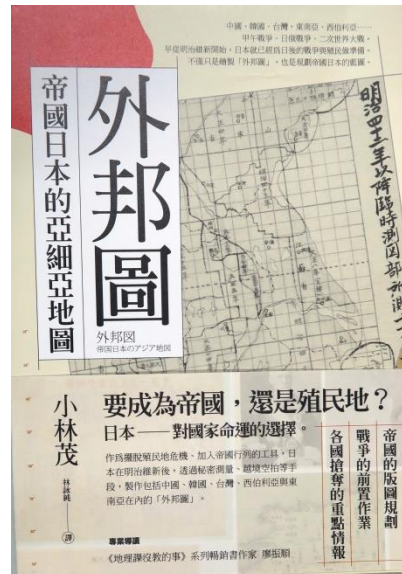 中國、韓國、台灣、東南亞、西伯利亞……
甲午戰爭、日俄戰爭、二次世界大戰。
早從明治維新開始，日本就已經為日後的戰爭與殖民做準備。
不僅只是繪製「外邦圖」，也是規劃帝國日本的藍圖。
外邦圖
帝國日本的亞細亞地圖
外邦図
帝国日本のアジア地図
明治四十一年以降臨時測図部
要成為帝國，還是殖民地？
日本——對國家命運的選擇。
小林茂
林詠純
譯
作為擺脫殖民地危機、加入帝國行列的工具，日
本在明治維新後，透過秘密測量、越境空拍等手
段，製作包括中國、韓國、台灣、西伯利亞與東
南亞在內的「外邦圖」。
帝國的版圖規劃
戰爭的前置作業
各國搶奪的重點情報
專業導讀
《地理課沒教的事》系列暢銷書作家 廖振順